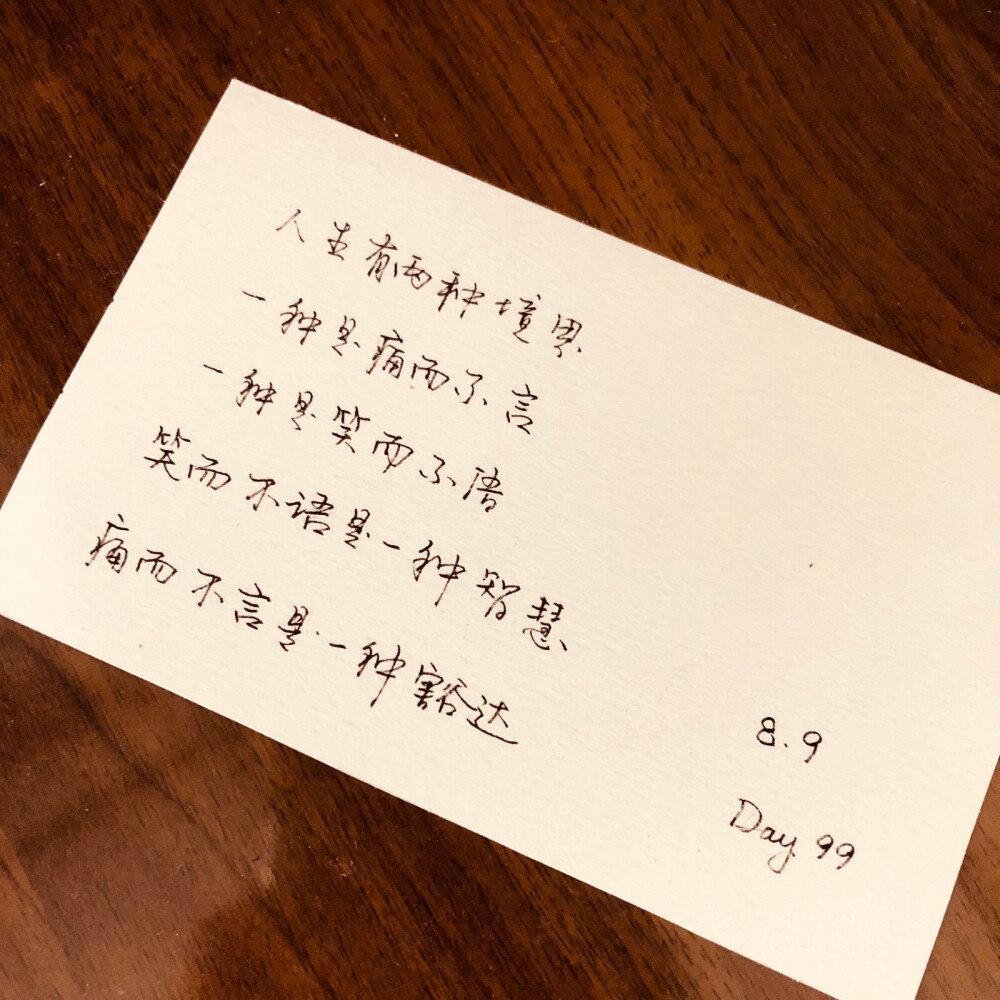 人生有两种境界
一种是痛而不言
一种是笑而不语
笑而不语是一种智慧
痛而不言是一种豁达
8.9
Day 99